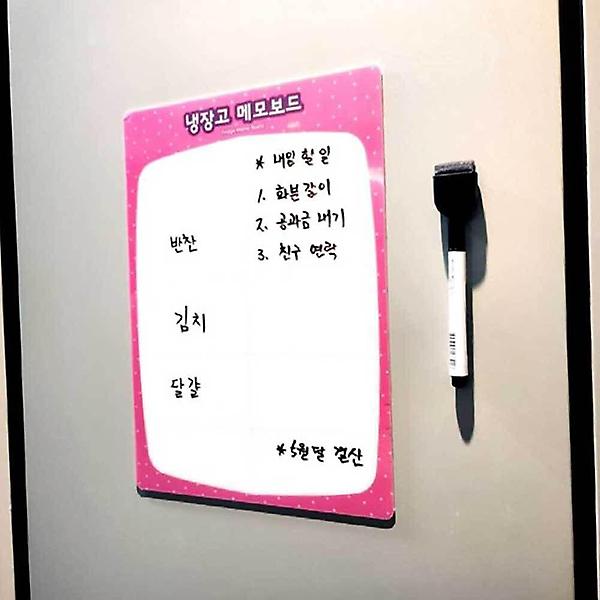 냉장고 메모보드
* 내일 할 일
1. 화분갈이
2. 공과금 내기
3. 친구 연락
반찬
김치
달걀
* 5월달 결산